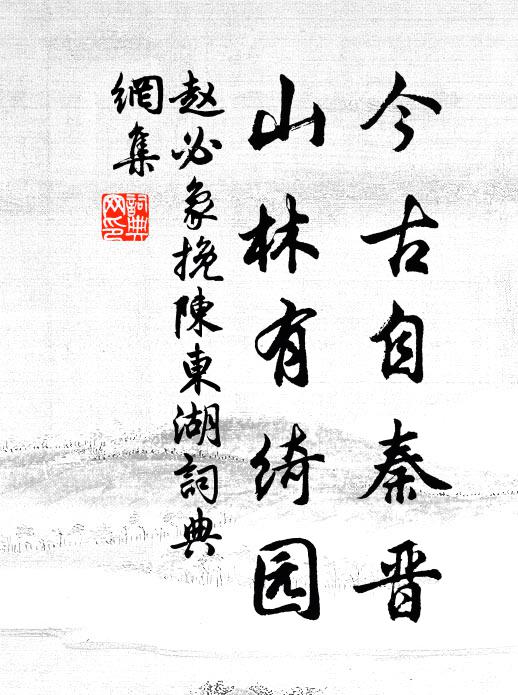 今古自秦晋
山林有绮园
赵必象挽陳東湖詞典
網集
詞典
网印